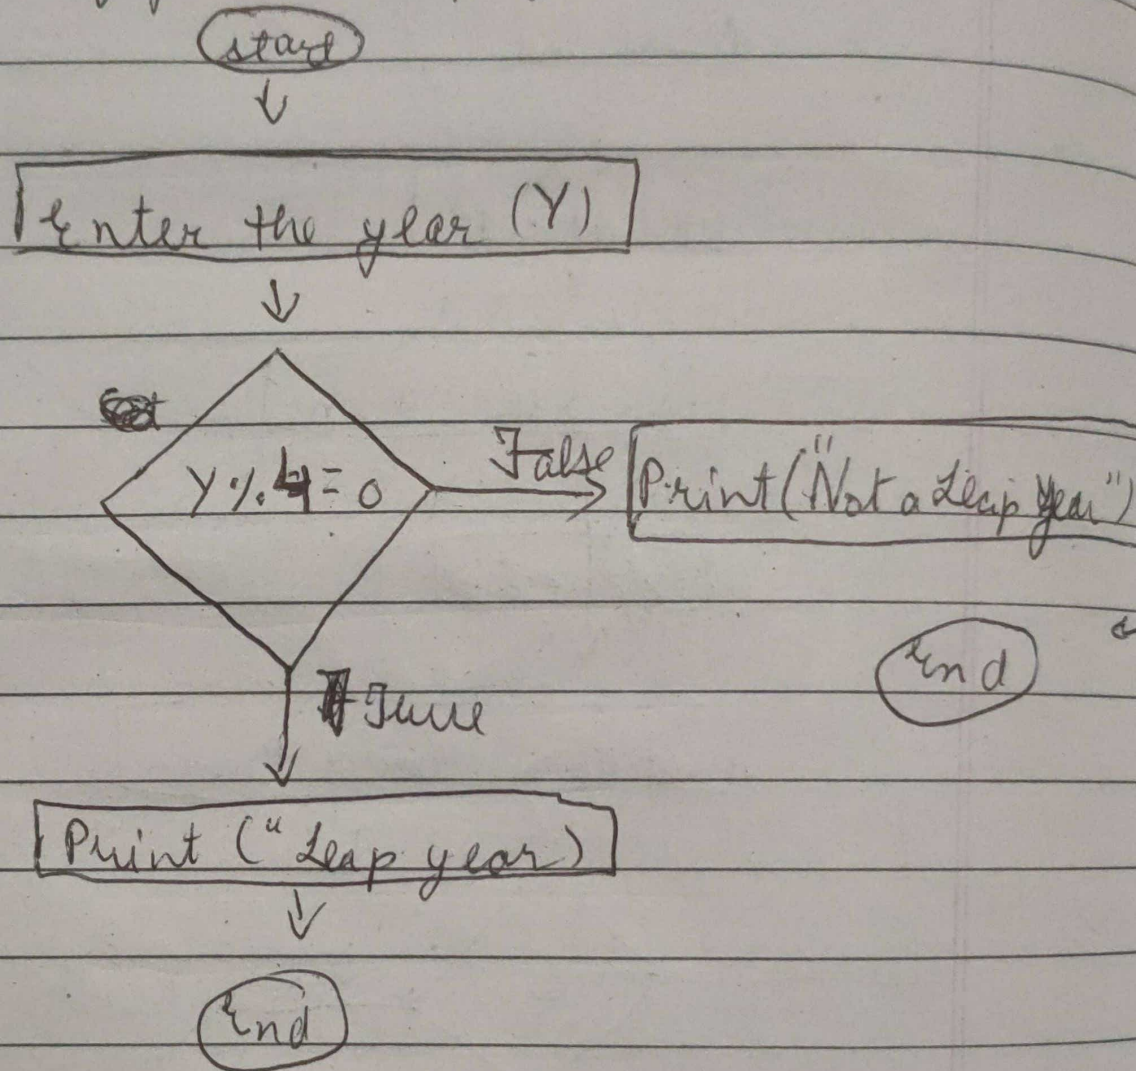 start
Enter the year (Y)
Y % 4 = 0
False
Print ("Not a Leap Year")
End
True
Print (" Leap year)
End